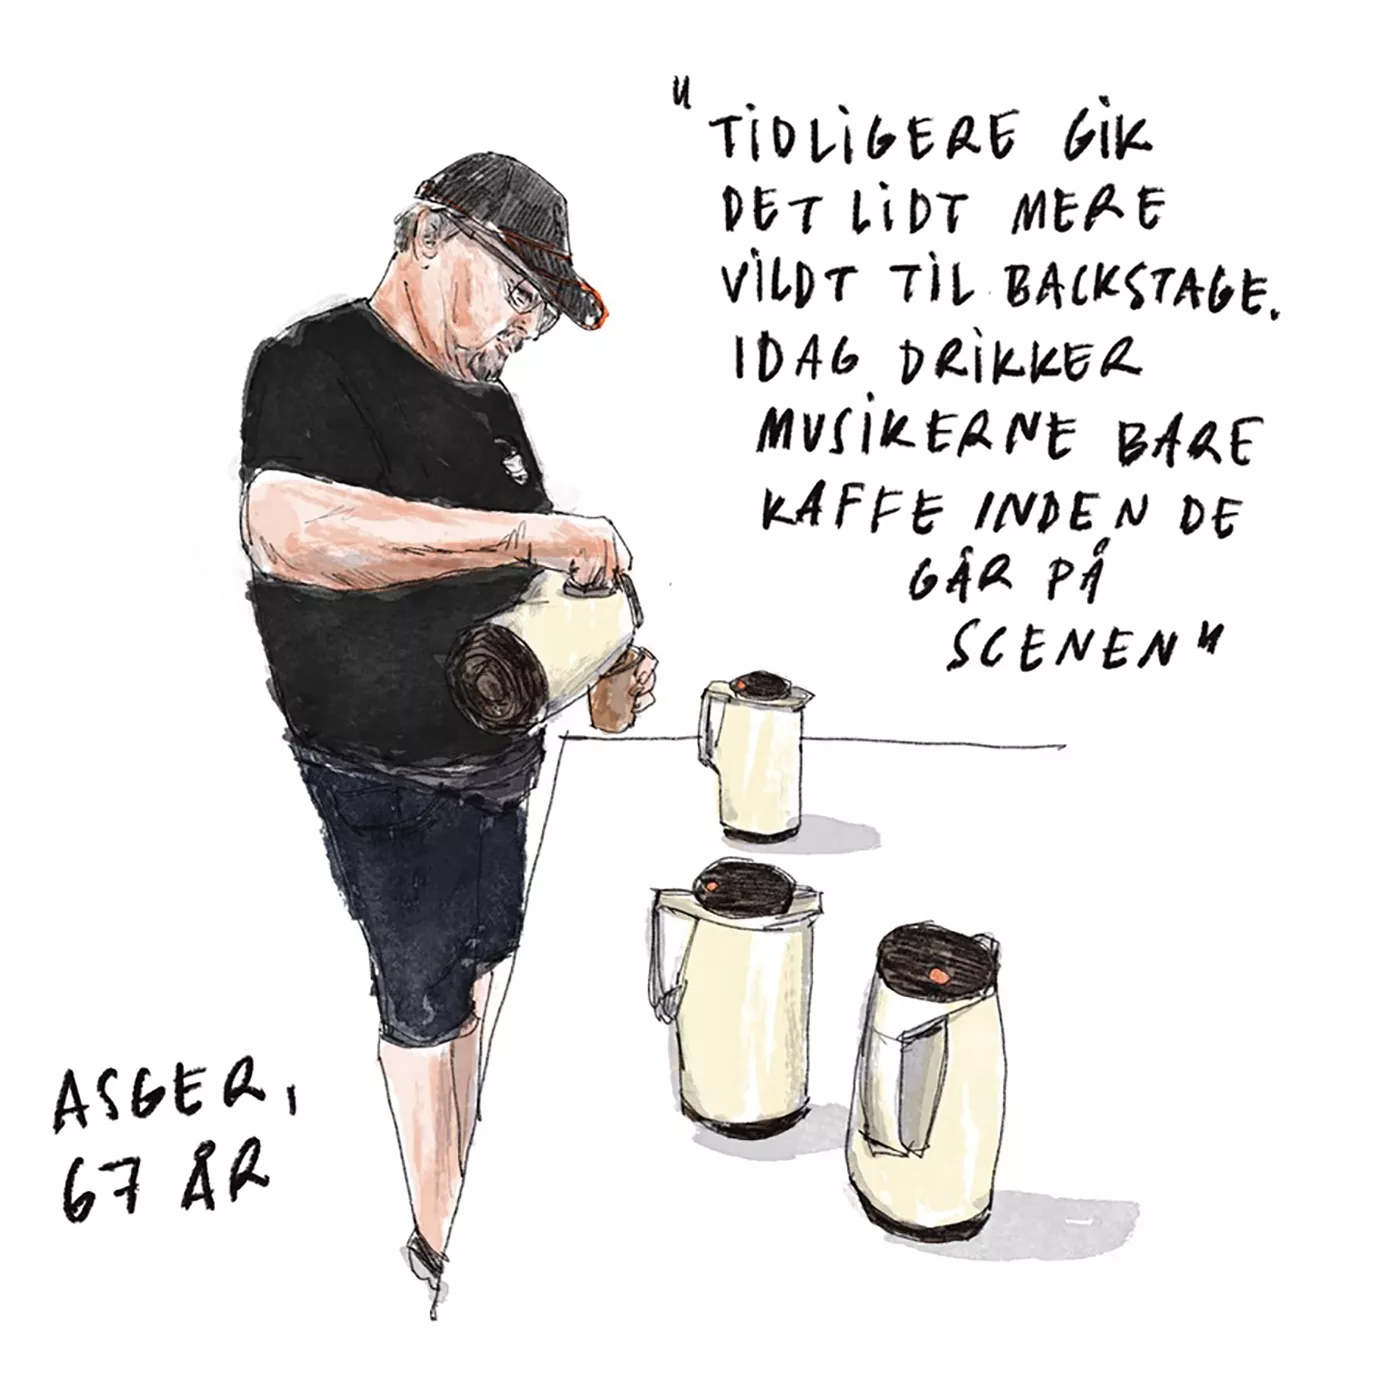 "TIDLIGERE GIK
DET LIDT MERE
VILDT TIL BACKSTAGE.
IDAG DRIKKER
MUSIKERNE BARE
KAFFE INDEN DE
GÅR PÅ
SCENEN"
ASGER,
67 ÅR